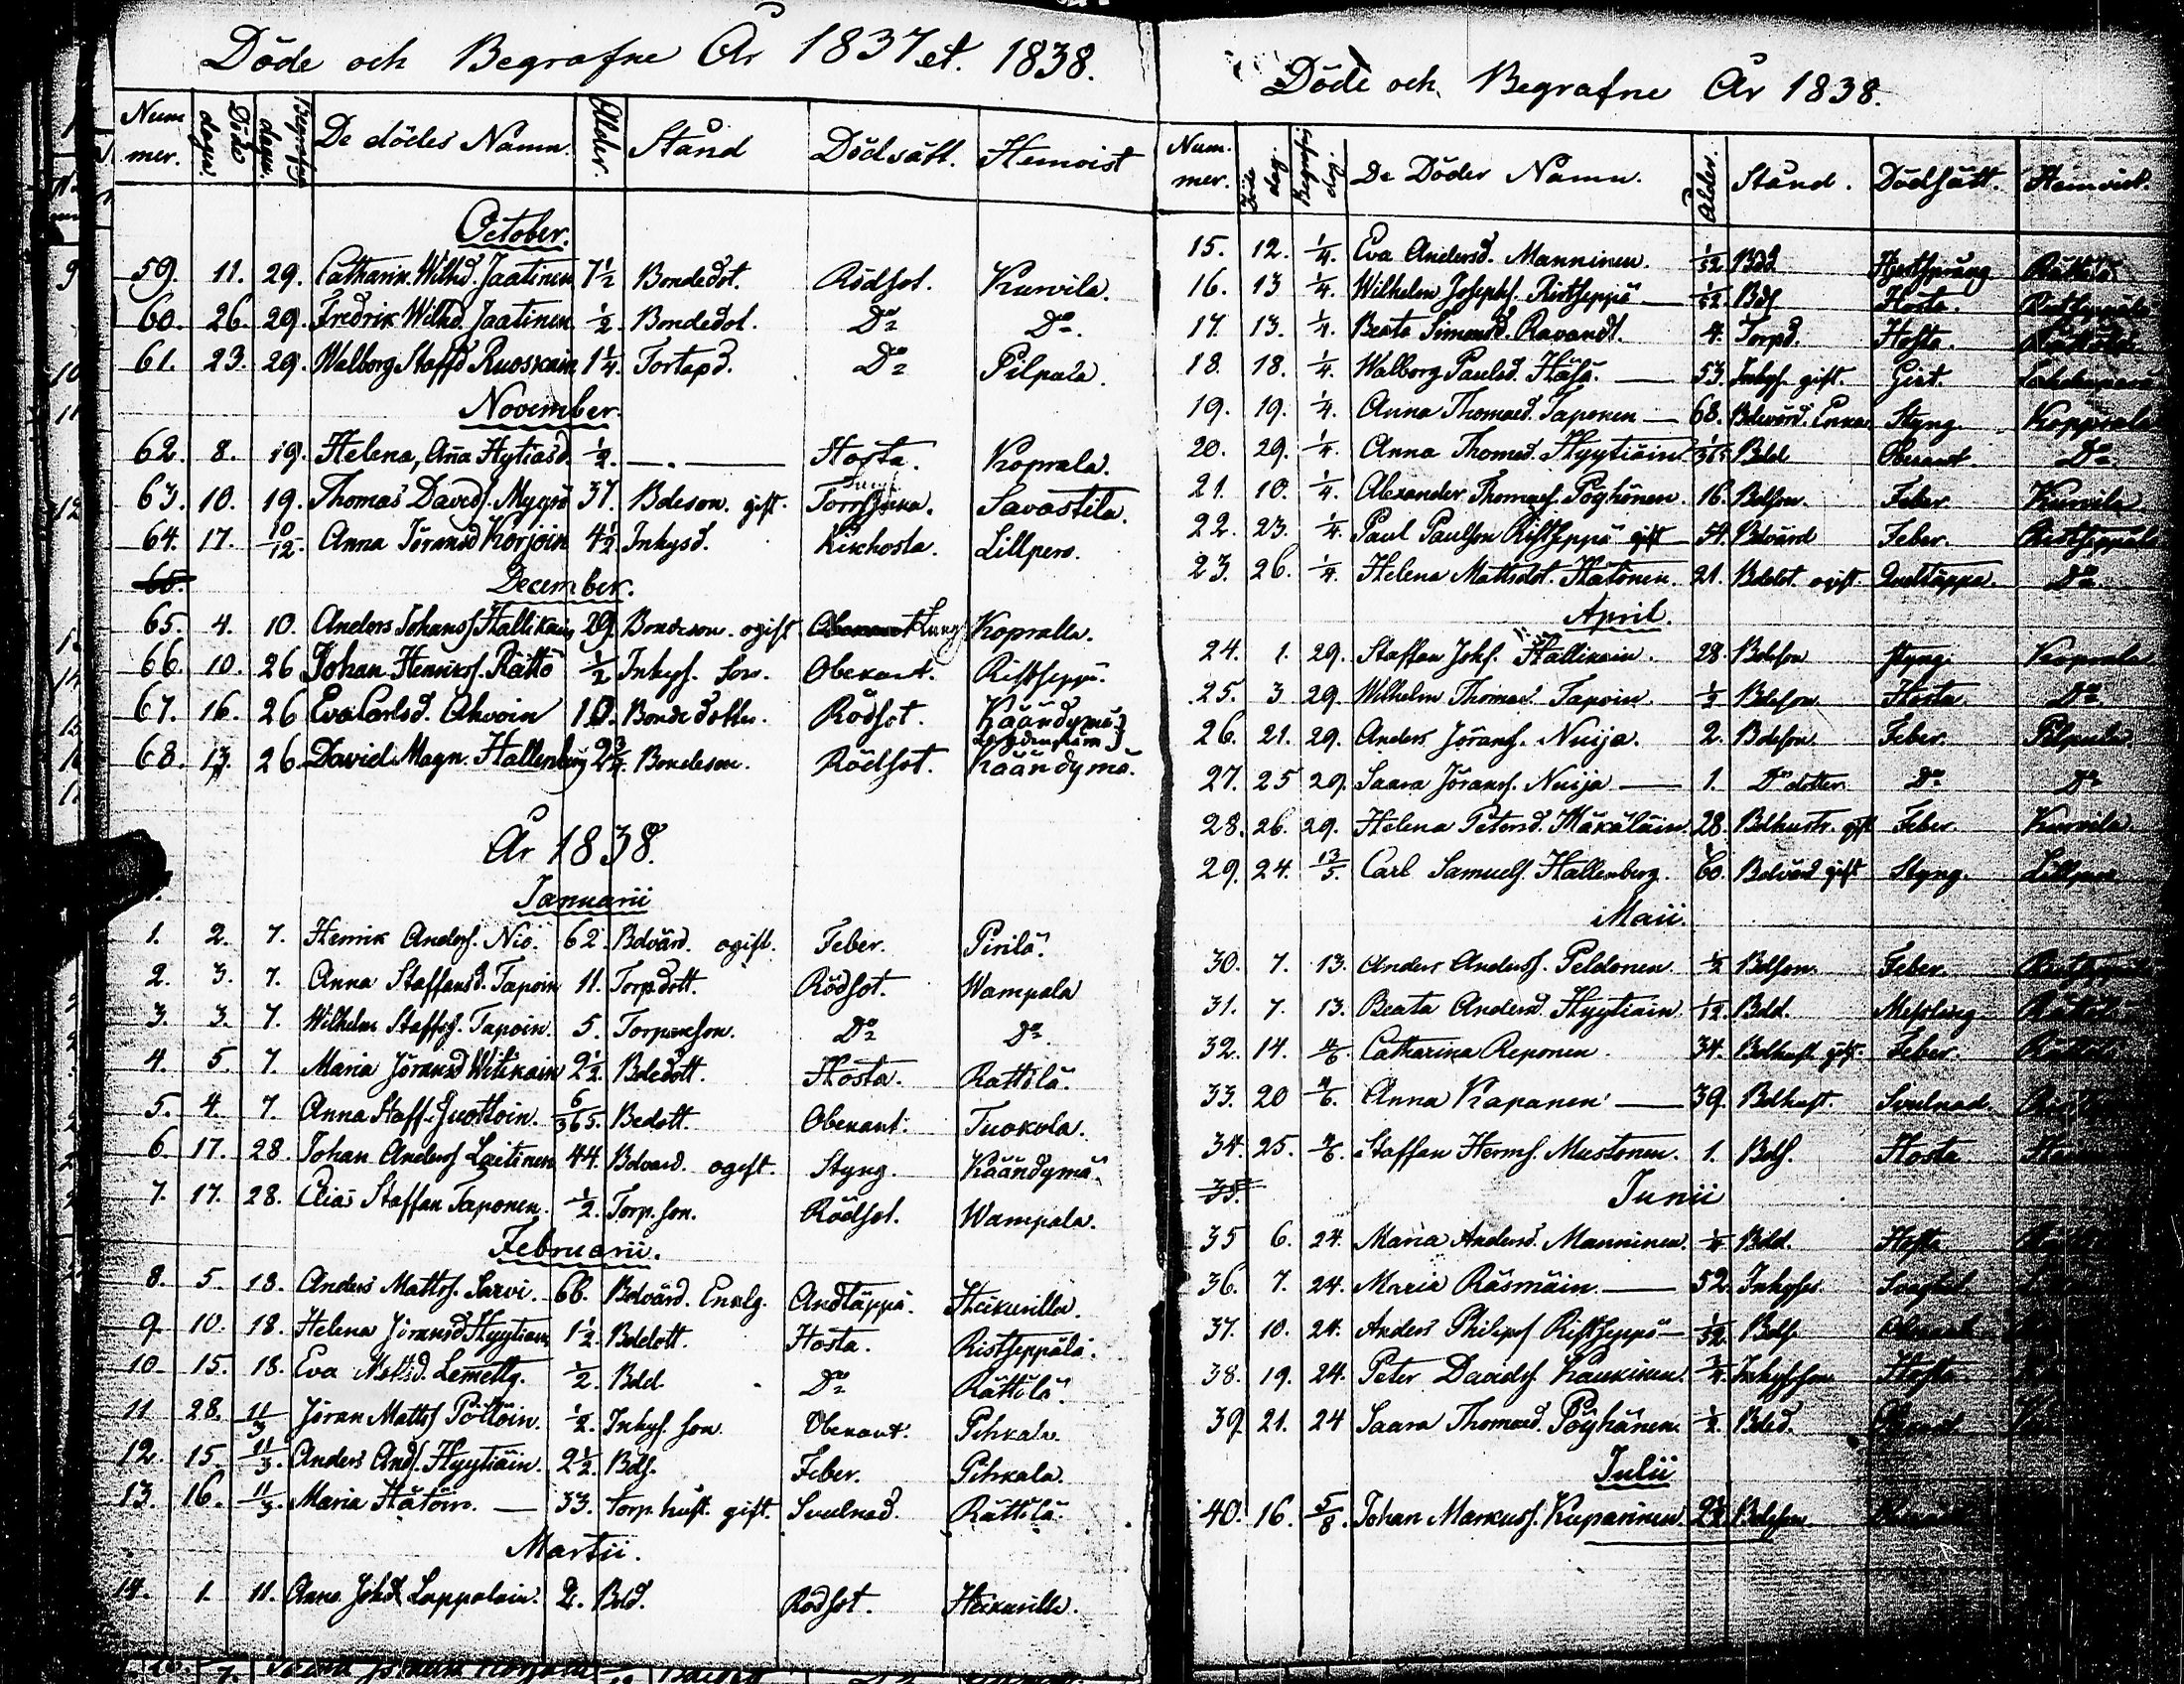 Döde och Begrafne År 1837 et. 1838.
Num mer. Dödo dagen. Begrafn dagen. De dödes Namn. Ålder. Stånd Dödsätt. Hemvist
October.
59. 11. 29. Catharin. Wilhd. Jaatinen 7 1/2 Bondedot. Rödsot. Kurvila.
60. 26. 29. Fredrik Wilhd. Jaatinen 1/2. Bondedot. Do Do
61. 23. 29. Walborg Staffd Ruoskain 1 1/4 Tortapd. Do Pilpala.
November.
62. 8. 19. Helena, Aña Hytiasd. 1/2. Hosta. Koprala.
63. 10. 19. Thomas Davids. Myyrö 37. Bdeson. gift. Savastila.
64. 17. 10/12. Anna Jöransd Korjoin 4 1/2 Inhysd. Kikhosta. Lillpero.
65.
December.
65. 4. 10. Anders Johans. Hallikain 29. Bondeson. ogift Lung Kopralla.
66. 10. 26 Johan Henrikss. Rättö 1/2 Inhys. son. Obekant. Ristseppä.
67. 16. 26 Eva Carlsd. Ahvoin 10. Bondedotter. Rödsot. Käändymä
68. 13. 26. David Magn. Hallenberg 2 3/4. Bondeson. Rödsot. Käändymä.
År 1838.
Januarii
1. 2. 7. Henrik Anders. Niö. 62. Bdvärd. ogift. Feber. Pirilä.
2. 3. 7. Anna Staffansd. Tapoin 11. Torpdott. Rödsot. Wampala
3. 3. 7. Wilhelm Staffss. Tapoin. 5. Torpareson. Do Do
4. 5. 7. Maria Jöransd Witikain 2 1/2. Bdedott. Hosta. Rättilä.
5. 4. 7. Anna Staff. Juottoin. 6/365. Bedott. Obekant. Tuokola.
6. 17. 28. Johan Anders Laitinen 44. Bdvard. ogift. Styng. Käändymä.
7. 17. 28. Elias Staffan Taponen. 1/2. Torp. son. Rödsot. Wampala.
Februarii.
8. 5. 18. Anders Mattss. Sarvi. 66. Bdvärd. Enklg. Andtäppa. Heikurilla.
9. 10. 18. Helena Jöransd Hyytiain 1 1/2. Bdedott. Hosta. Ristseppälä.
10. 15. 18. Eva Mattsd. Lemettg. 1/2. Bdd. Do Rättilä.
11 28. 11/3 Jöran Matts Pöllöin. 1/2. Inhys. son. Obekant. Pihkala.
12. 15. 11/3. Anders Ands. Hyytiäin. 2 1/2. Bds. Feber. Pihkala.
13. 16. 11/3 Maria Hätöin. 33. Torp. hust. gift. Svulnad. Rättilä.
Martii.
14. 1. 11. Anna Johsd Lappalain. 2. Bdd. Rödsot. Heikurille.
Döde och Begrafne År 1838.
Num. mer. Döde dag. De Döder Namn. Ålder. Stånd. Dödsätt. Hemvist.
15. 12. 1/4. Eva Andersd. Manninen. 1/52 Bdd Hjertsprång Rättilä
16. 13 1/4. Wilhelm Josephs. Ristseppä 1/52. Bds Hosta. Ristseppälä
17. 13. 1/4. Beata Simonsd. Ravandt. 4. Torpd. Hosta.
18. 18. 1/4. Walborg Paulsd. Häsä. 53. Inhys. gift. Gikt.
19. 19. 1/4. Anna Thomasd. Taponen 68. Bdevärd. Enka Styng. Kopprala
20. 29. 1/4. Anna Thomasd. Hyytiäin 1/365 Bdd Obekant. Do
21. 10. 1/4. Alexander Thomass. Pöyhönen. 16. Bdson. Feber. Kurvila
22. 23. 1/4. Paul Paulson Ristseppä gift 54. Bdvärd Feber. Ristseppälä
23. 26. 1/4. Helena Mattsdot. Hätönen. 21. Bdedot. ogift Andtäppa. Do
April.
24. 1. 29. Staffan Johs. Hallikain. 28. Bdeson Styng. Koprala
25. 3 29. Wilhelm Thomas. Tapoin. 1/2 Bdeson Hosta. Do
26. 21. 29. Anders Jörans. Nuija. 2. Bdeson. Feber. Pilpala.
27. 25 29. Saara Jörans. Nuija 1. Do dotter. Do Do
28. 26. 29. Helena Petersd. Mäkäläin. 28. Bdhustr. gift Feber. Kurvila.
29. 24. 13/5. Carl Samuels. Hallenberg. 60. Bdvärd gift Styng. Lillpero
Maii.
30. 7. 13. Anders Anderss. Peldonen. 1/2 Bdson. Feber.
31. 7. 13. Beata Andersd. Hyytiain. 1/12. Bdd. Messling Rättilä
32. 14. 4/6. Catharina Reponen. 34. Bdhust. gift. Feber. Rättilä
33. 20 4/6. Anna Kapanen 39. Bdhust. Svulnad.
34. 25. 4/6. Staffan Herms. Mustonen. 1. Bds. Hosta.
35.
Junii
35 6. 24. Maria Andersd. Manninen. Bdd. Hosta
36. 7. 24. Maria Räsmäin. 52. Inhyses.
37. 10. 24. Anders Philips Ristseppä 1/52. Bds. Obekant
38. 19. 24. Peter Davids. Kaukinen. 3/4. Inhys. son Hosta
39. 21. 24 Saara Thomasd. Pöyhönen. 1/2. Bded.
Julii
40. 16. 5/8. Johan Markuss. Kuparinen. Bdeson.